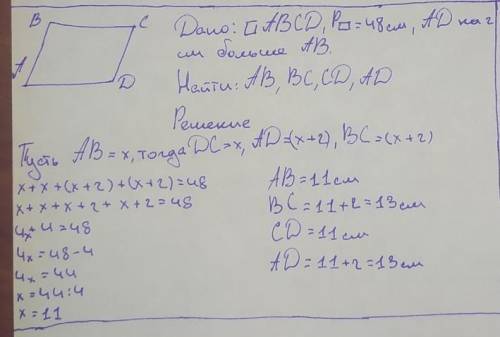 B C
A D
Дано: □ ABCD, P□ = 48 см, AD на 2
см больше AB.
Найти: AB, BC, CD, AD
Решение
Пусть AB = x, тогда DC = x, AD = (x+2), BC = (x+2)
x + x + (x+2) + (x+2) = 48
x + x + x + 2 + x + 2 = 48
4x + 4 = 48
4x = 48 - 4
4x = 44
x = 44 : 4
x = 11
AB = 11 см
BC = 11 + 2 = 13 см
CD = 11 см
AD = 11 + 2 = 13 см